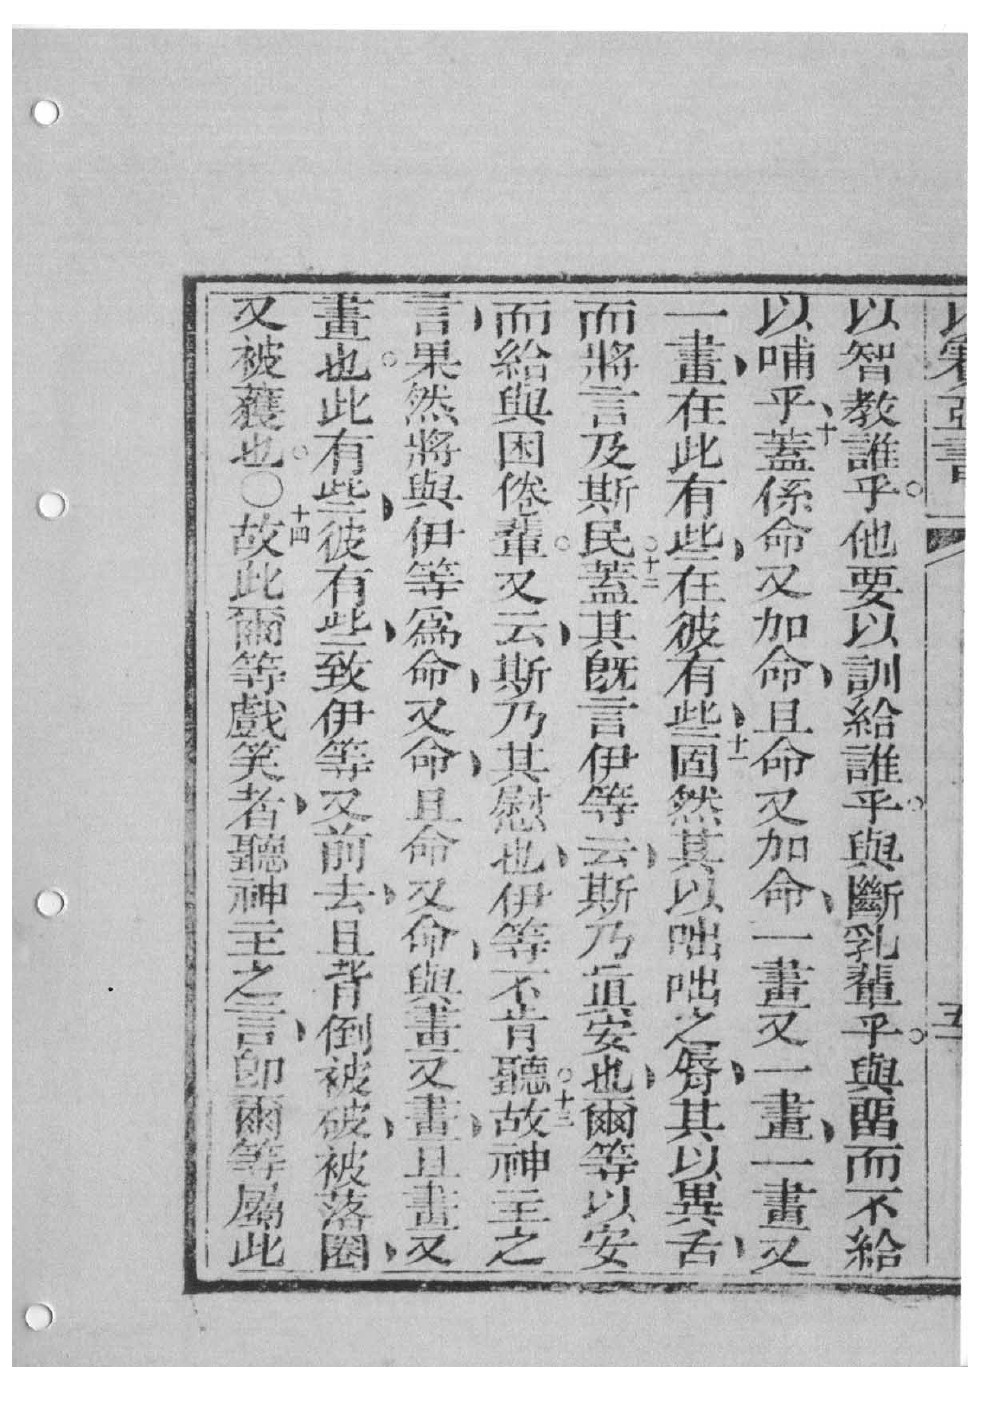 以賽亞書 五
以智教誰乎。他要以訓給誰乎。與斷乳輩乎。與留而不給
以哺乎、十蓋係命又加命、且命又加命、一畫又一畫、一畫又
一畫、在此有些、在彼有些、十一固然其以咄咄之辱、其以異舌、
而將言及斯民。十二蓋其旣言伊等云、斯乃眞安也、爾等以安
而給與困倦輩。又云、斯乃其慰也、伊等不肯聽。十三故神主之
言、果然將與伊等爲命、又命、且命又命、與畫又畫、且畫又
畫也。此有些、彼有些、致伊等又前去、且背倒被破、被落圈、
又被蕿也。〇十四故此爾等戲笑者、聽神主之言、卽爾等屬此